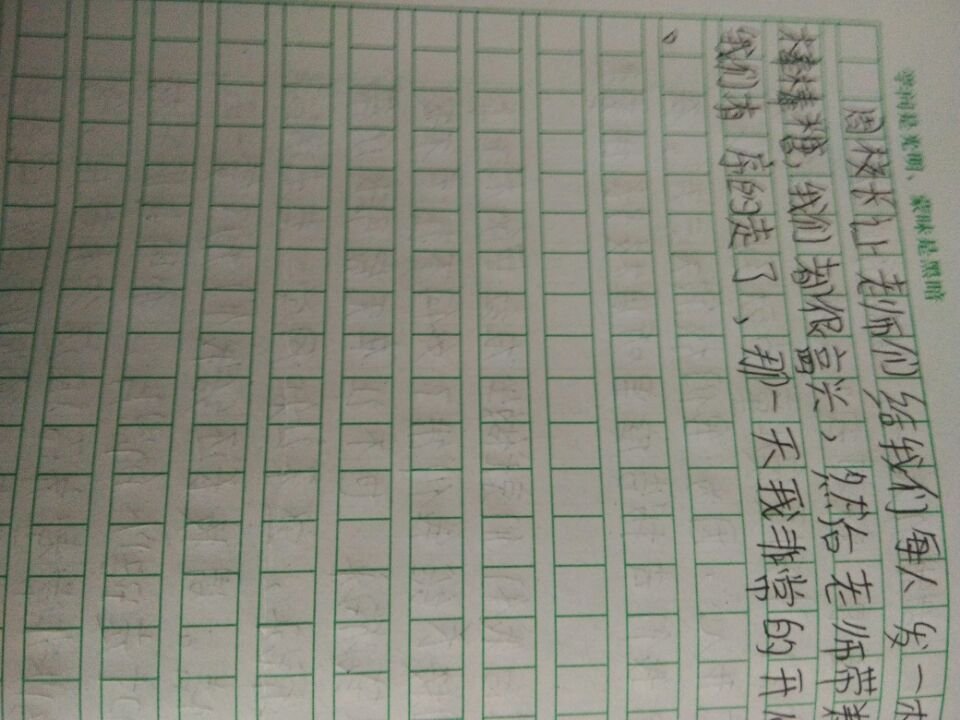 学问是光明、蒙昧是黑暗
周校长让老师们给我们每人发一
棒糖，我们都很高兴、然后老师带着
我们有序的走了、那一天我非常的开心
。